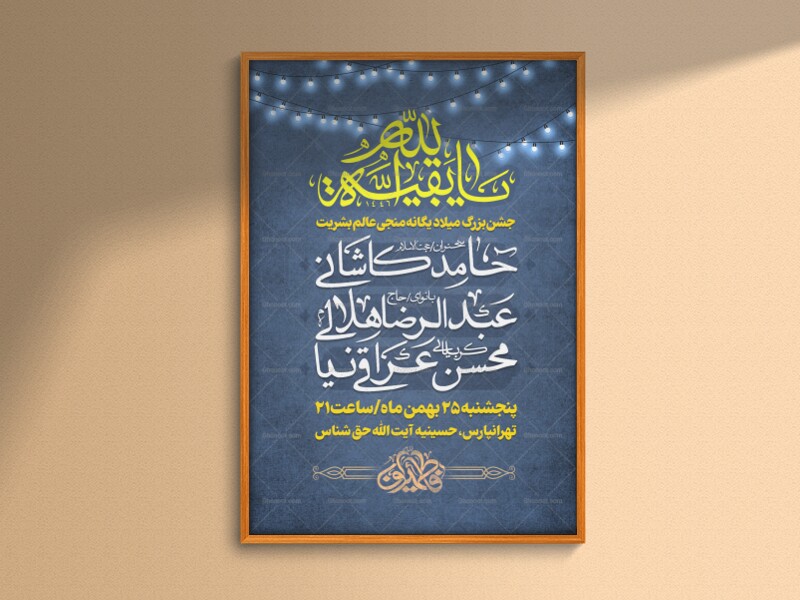 یا بقیة الله
۱۴۴۶
جشن بزرگ میلاد یگانه منجی عالم بشریت
سخنران/حجت الاسلام
حامد کاشانی
بانوای/حاج
عبدالرضا هلالی
کربلایی
محسن عراقی نیا
پنجشنبه ۲۵ بهمن ماه/ساعت ۲۱
تهرانپارس، حسینیه آیت الله حق شناس
فاطمیون